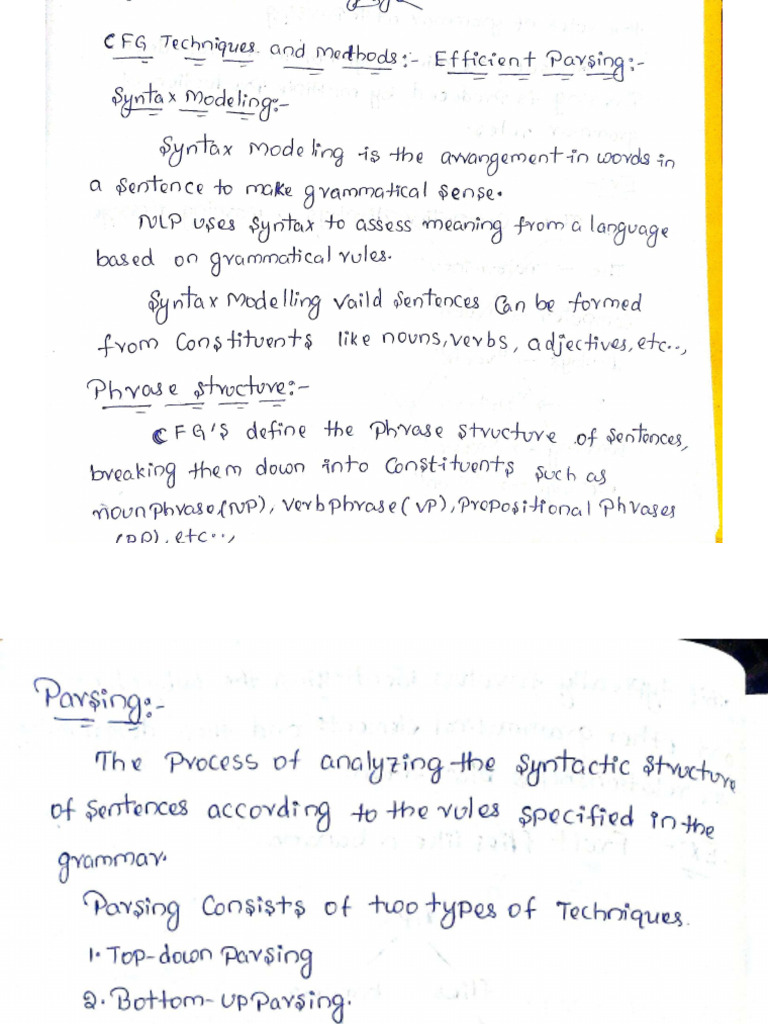 CFG Techniques and Methods:- Efficient Parsing:-
Syntax Modeling:-
Syntax Modeling is the arrangement in words in
a sentence to make grammatical sense.
NLP uses syntax to assess meaning from a language
based on grammatical rules.
Syntax Modelling vaild sentences can be formed
from constituents like nouns, verbs, adjectives, etc..,
Phrase Structure:-
CFG's define the Phrase structure of sentences,
breaking them down into constituents such as
nounphrase(NP), verbphrase(VP), Prepositional Phrases
(PP), etc..,
Parsing:-
The Process of analyzing the syntactic structure
of sentences according to the rules specified in the
grammar.
Parsing Consists of two types of Techniques.
1. Top-down Parsing
2. Bottom-up Parsing.